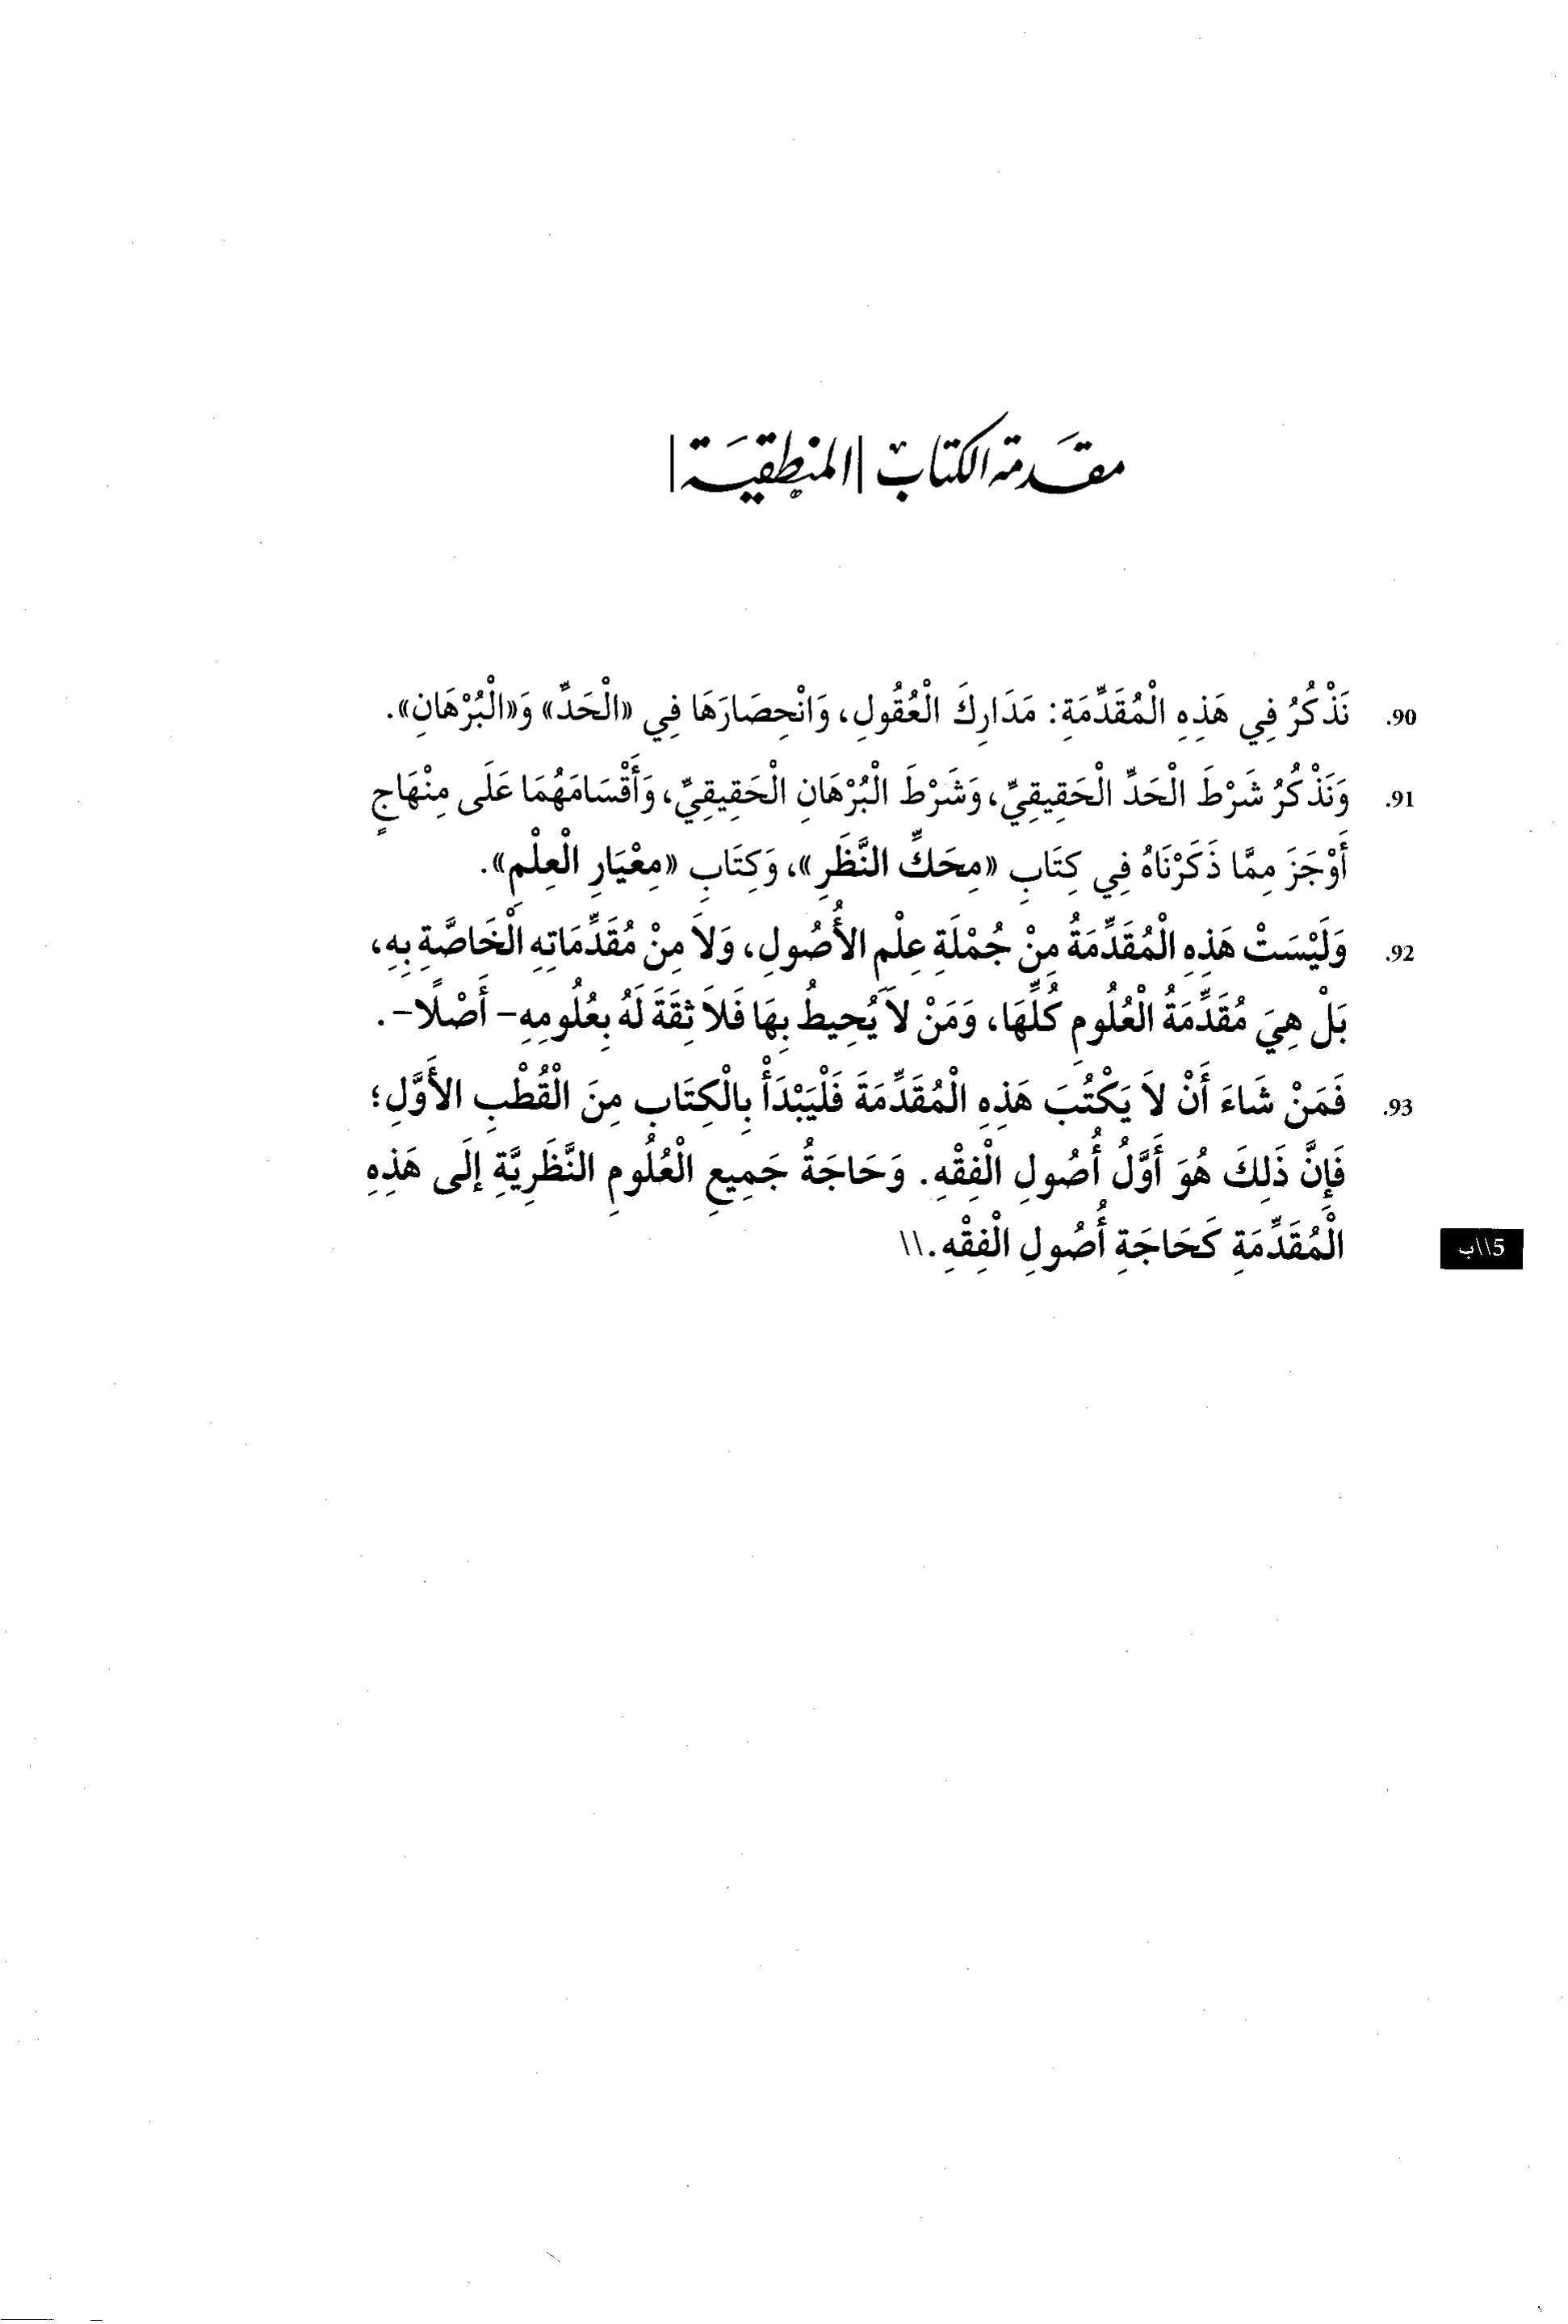 مقدمة الكتاب |المنطقية|
90. نَذْكُرُ فِي هَذِهِ الْمُقَدِّمَةِ: مَدَارِكَ الْعُقُولِ، وَانْحِصَارَهَا فِي «الْحَدِّ» وَ«الْبُرْهَانِ».
91. وَنَذْكُرُ شَرْطَ الْحَدِّ الْحَقِيقِيِّ، وَشَرْطَ الْبُرْهَانِ الْحَقِيقِيِّ، وَأَقْسَامَهُمَا عَلَى مِنْهَاجٍ
أَوْجَزَ مِمَّا ذَكَرْنَاهُ فِي كِتَابِ «مِحَكِّ النَّظَرِ»، وَكِتَابِ «مِعْيَارِ الْعِلْمِ».
92. وَلَيْسَتْ هَذِهِ الْمُقَدِّمَةُ مِنْ جُمْلَةِ عِلْمِ الأُصُولِ، وَلاَ مِنْ مُقَدِّمَاتِهِ الْخَاصَّةِ بِهِ،
بَلْ هِيَ مُقَدِّمَةُ الْعُلُومِ كُلِّهَا، وَمَنْ لاَ يُحِيطُ بِهَا فَلاَ ثِقَةَ لَهُ بِعُلُومِهِ- أَصْلًا-.
93. فَمَنْ شَاءَ أَنْ لاَ يَكْتُبَ هَذِهِ الْمُقَدِّمَةَ فَلْيَبْدَأْ بِالْكِتَابِ مِنَ الْقُطْبِ الأَوَّلِ؛
فَإِنَّ ذَلِكَ هُوَ أَوَّلُ أُصُولِ الْفِقْهِ. وَحَاجَةُ جَمِيعِ الْعُلُومِ النَّظَرِيَّةِ إِلَى هَذِهِ
الْمُقَدِّمَةِ كَحَاجَةِ أُصُولِ الْفِقْهِ.\\
5\\ب